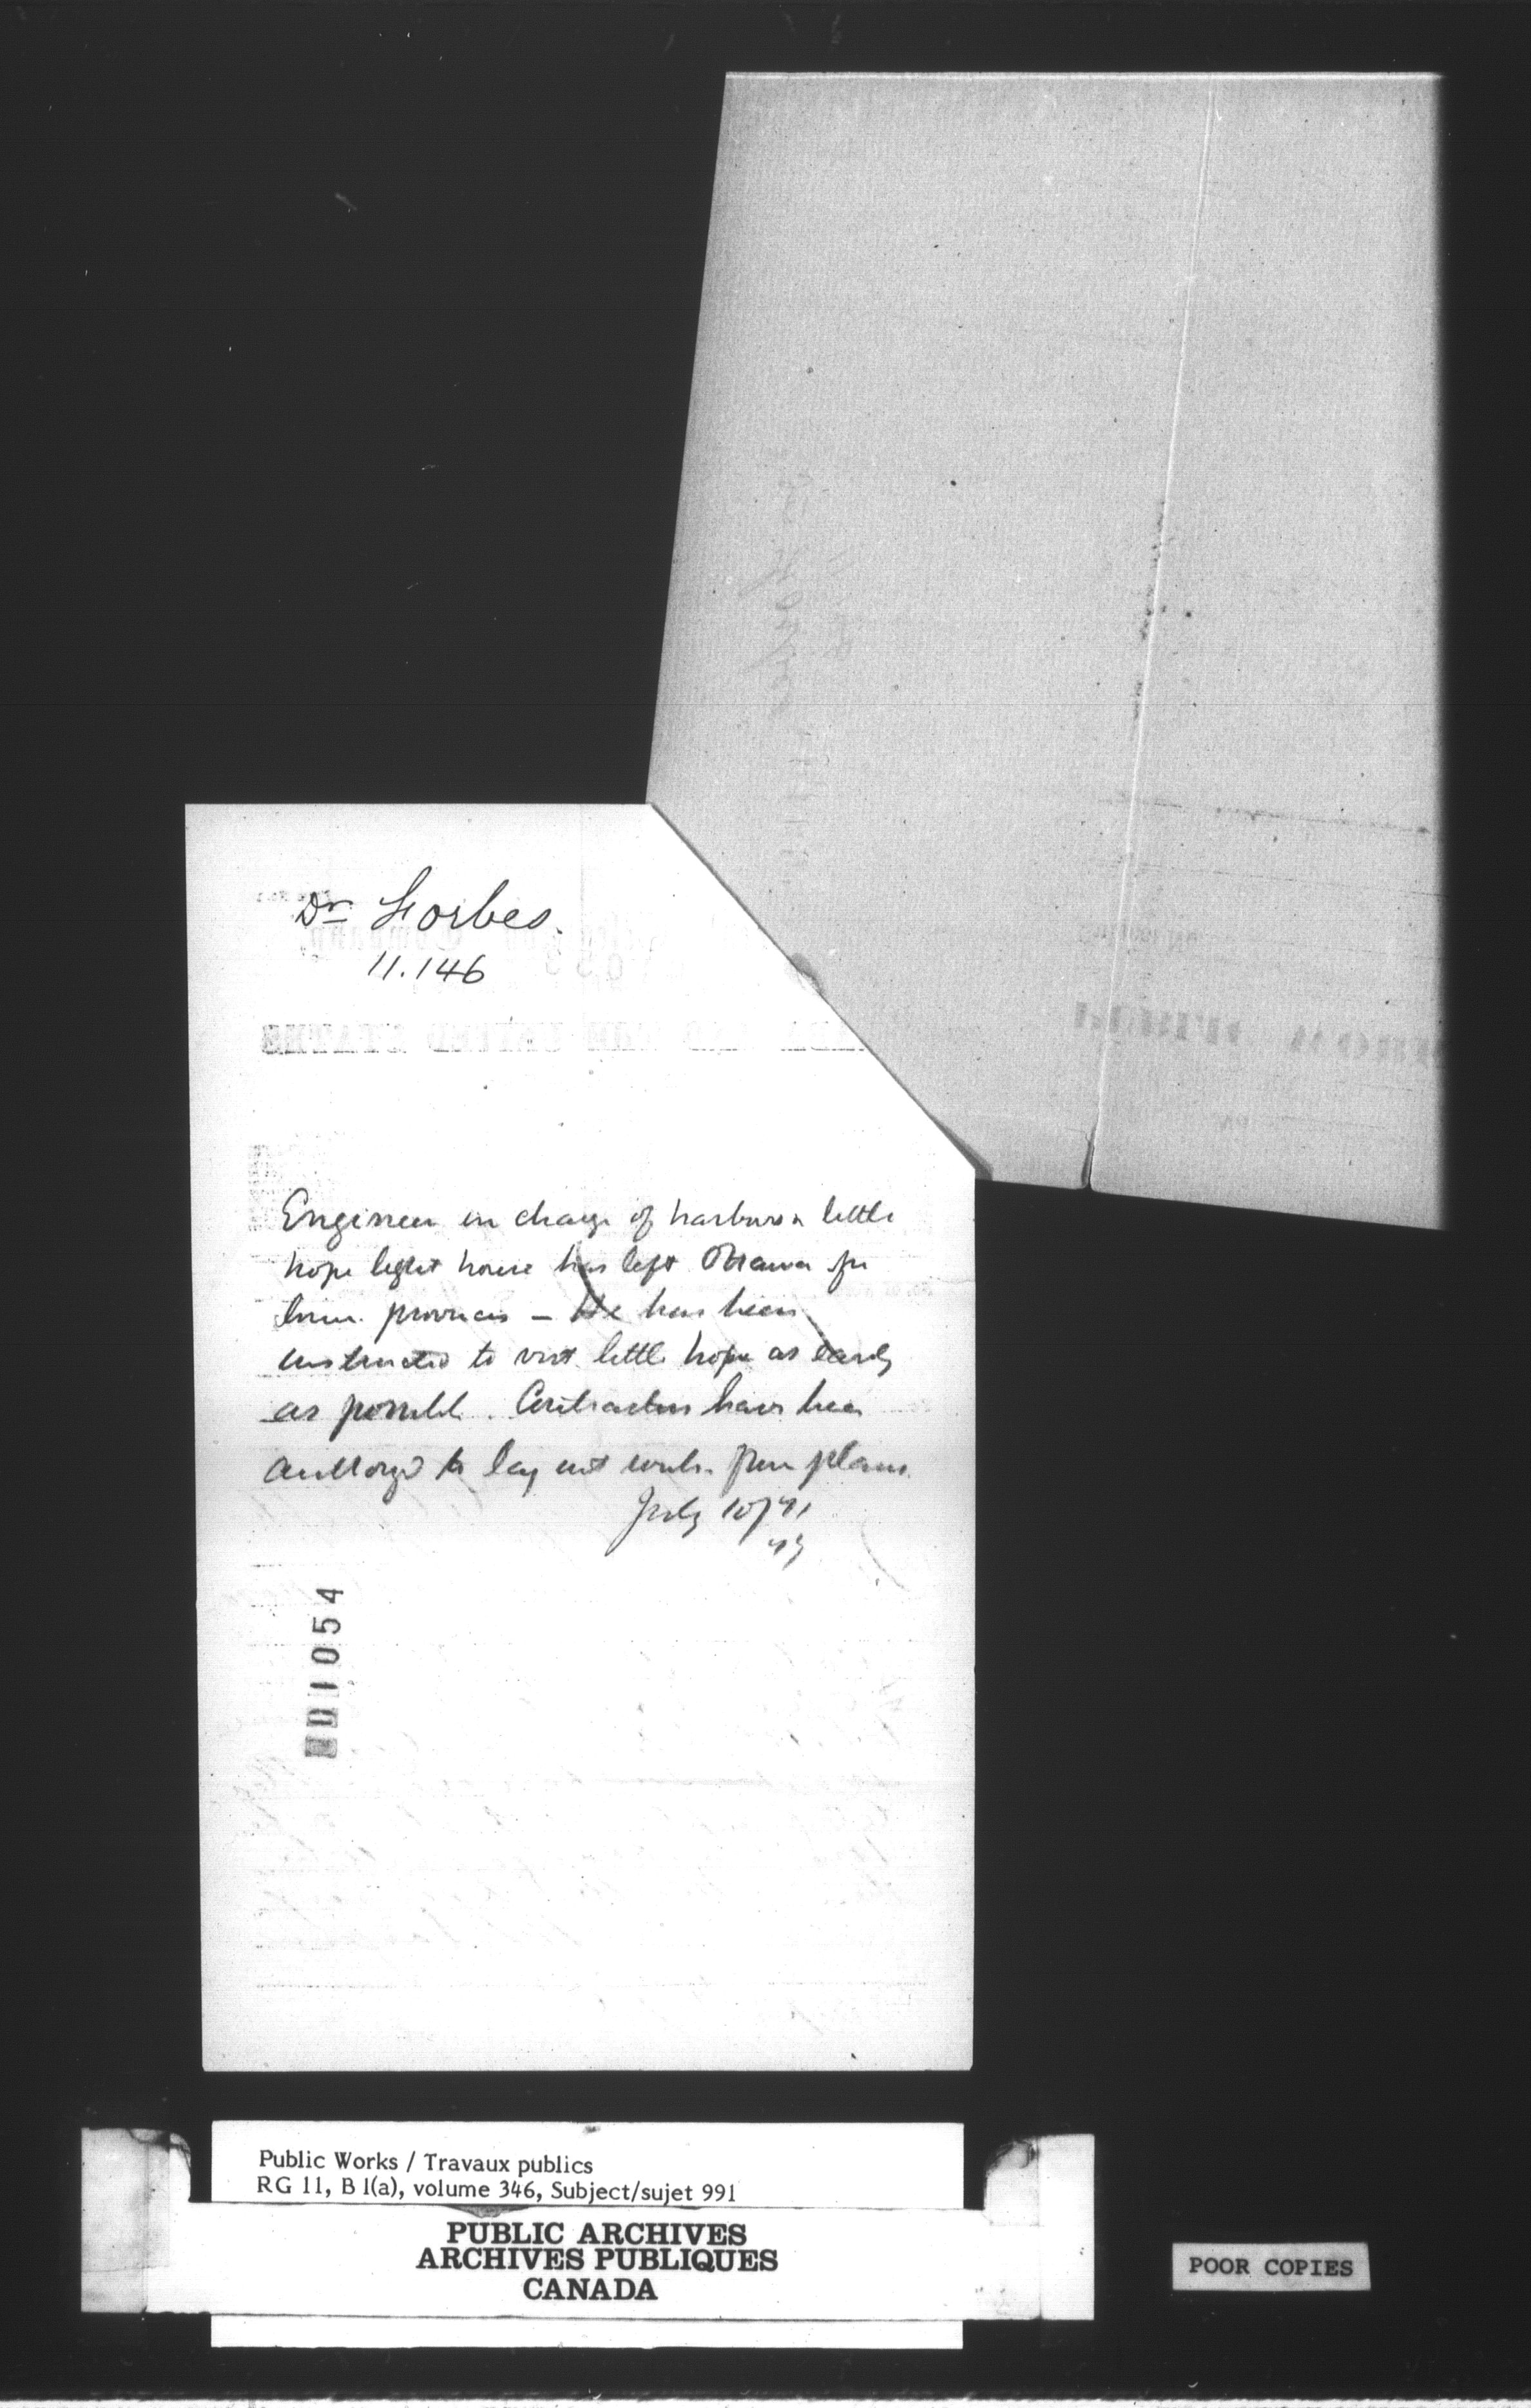 Dr Forbes.
11.146
Engineer in charge of harbours little
hope light house has left Ottawa for
lower provinces – He has been
instructed to visit little hope as early
as possible. Contractors have been
authorized to lay out works from plans.
July 10/71
1054
Public Works / Travaux publics
RG 11, B 1(a), volume 346, Subject/sujet 991
PUBLIC ARCHIVES
ARCHIVES PUBLIQUES
CANADA
POOR COPIES